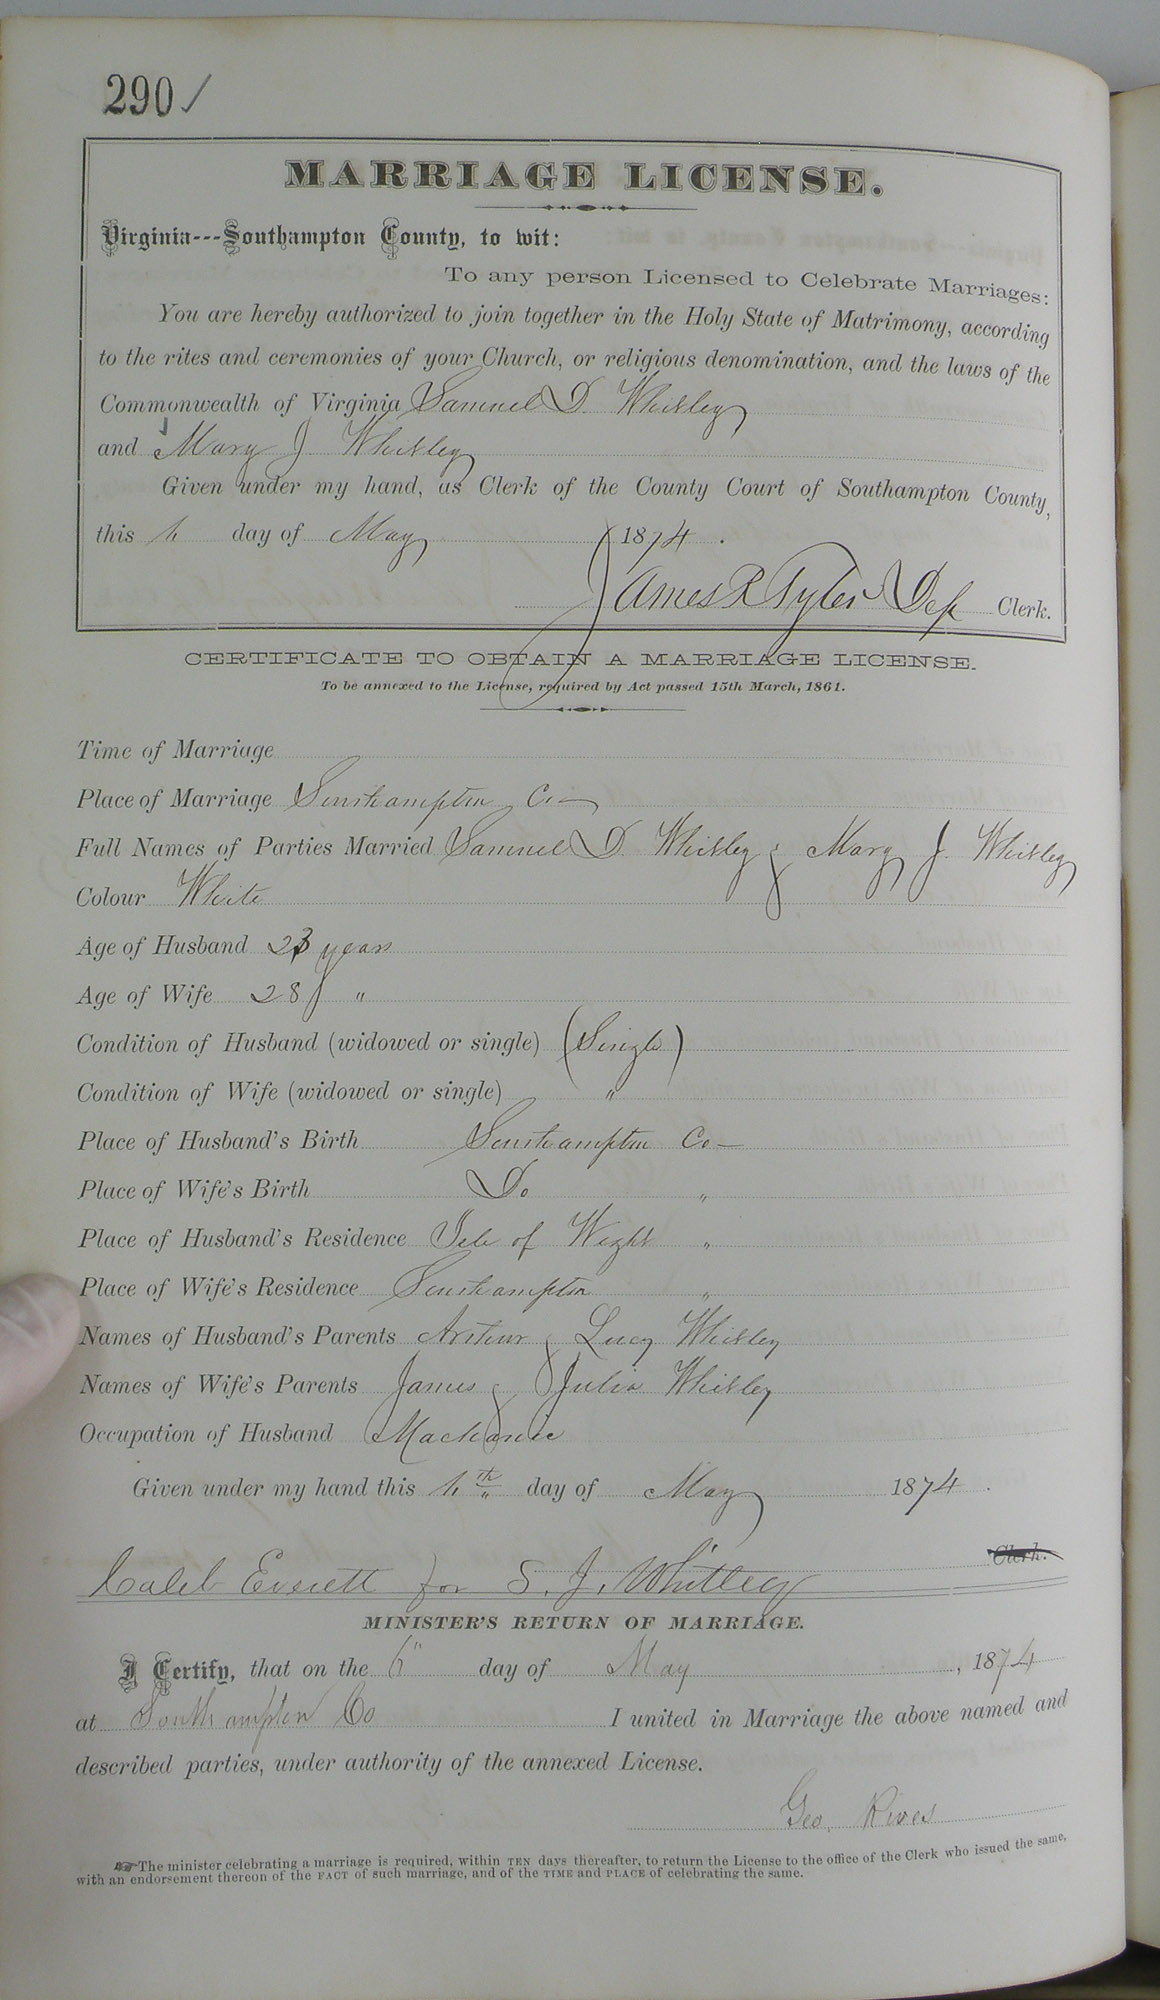 290 ✓
MARRIAGE LICENSE.
Virginia---Southampton County, to wit:
To any person Licensed to Celebrate Marriages:
You are hereby authorized to join together in the Holy State of Matrimony, according
to the rites and ceremonies of your Church, or religious denomination, and the laws of the
Commonwealth of Virginia Samuel D. Whitley
and Mary J Whitley
Given under my hand, as Clerk of the County Court of Southampton County,
this day of May 1874.
James R Tyler Dep Clerk.
CERTIFICATE TO OBTAIN A MARRIAGE LICENSE.
To be annexed to the License, required by Act passed 15th March, 1861.
Time of Marriage
Place of Marriage Southampton Co-
Full Names of Parties Married Samuel D. Whitley & Mary J. Whitley
Colour White
Age of Husband 23 years
Age of Wife 28 "
Condition of Husband (widowed or single) (Single)
Condition of Wife (widowed or single) "
Place of Husband's Birth Southampton Co-
Place of Wife's Birth Do "
Place of Husband's Residence Isle of Wight "
Place of Wife's Residence Southampton "
Names of Husband's Parents Arthur & Lucy Whitley
Names of Wife's Parents James & Julia Whitley
Occupation of Husband Mackanic
Given under my hand this th day of May 1874.
Caleb Everett for S. J. Whitley Clerk.
MINISTER'S RETURN OF MARRIAGE.
I Certify, that on the 6" day of May, 1874
at Southampton Co I united in Marriage the above named and
described parties, under authority of the annexed License.
Geo. Rives
☞The minister celebrating a marriage is required, within TEN days thereafter, to return the License to the office of the Clerk who issued the same,
with an endorsement thereon of the FACT of such marriage, and of the TIME and PLACE of celebrating the same.